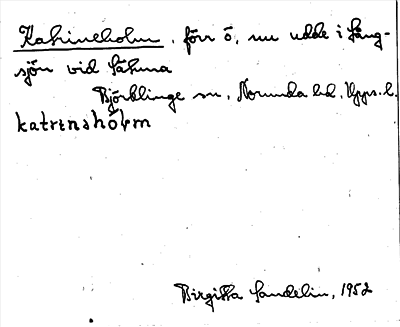 Katrineholm, förr ö, nu udde i Lång-
sjön vid Sätuna
Björklinge sn, Norunda hd, Upps. l.
katrɩnshòḷm
Birgitta Sandelin, 1952